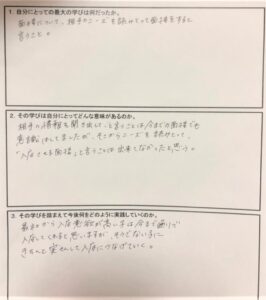 1. 自分にとっての最大の学びは何だったか。
面接について、相手のニーズを読みとって面接をすると
言うこと。
2. その学びは自分にとってどんな意味があるのか。
相手の情報を聞き出して、と言うことは今までの面接でも
意識はしてましたが、そこからニーズを読みとって、
「入店させる面接」と言うことは出来てなかったと思う。
3. その学びを踏まえて今後何をどのように実践していくのか。
最初から入店意欲が高い子は今まで通りで
入店してくれると思いますが、そうでない子に
きちんと実せんして入店につなげていく。